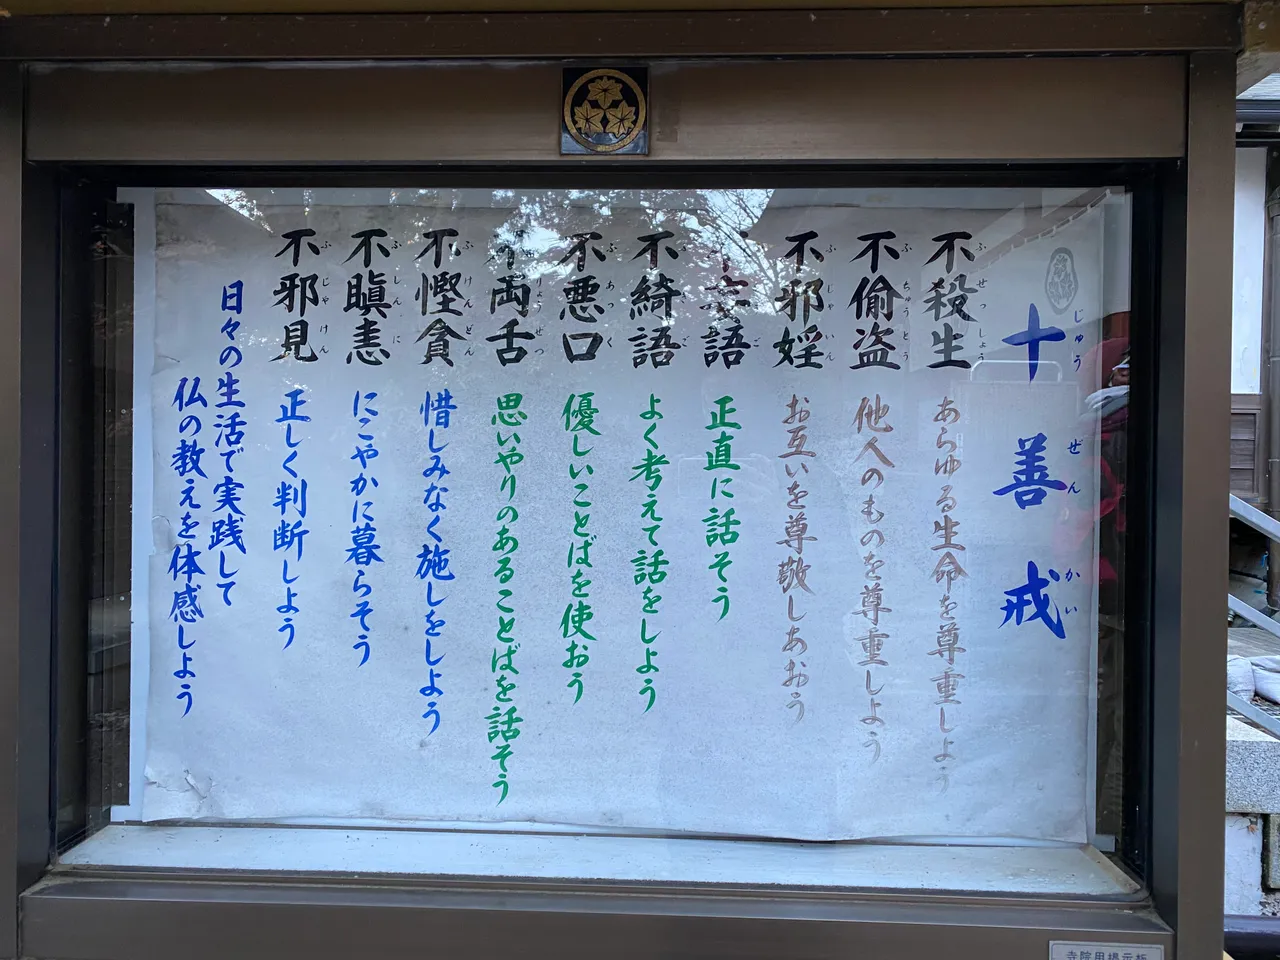 十善戒
不殺生 あらゆる生命を尊重しよう
不偸盗 他人のものを尊重しよう
不邪婬 お互いを尊敬しあおう
不妄語 正直に話そう
不綺語 よく考えて話をしよう
不悪口 優しいことばを使おう
不両舌 思いやりのあることばを話そう
不慳貪 惜しみなく施しをしよう
不瞋恚 にこやかに暮らそう
不邪見 正しく判断しよう
日々の生活で実践して
仏の教えを体感しよう
寺院用掲示板